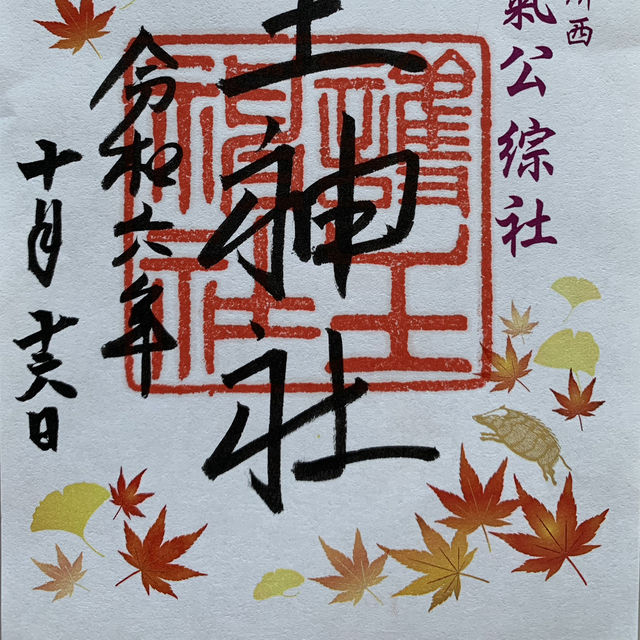 西
氣公綜社
王神社
護王
神社
令和六年
十月十六日